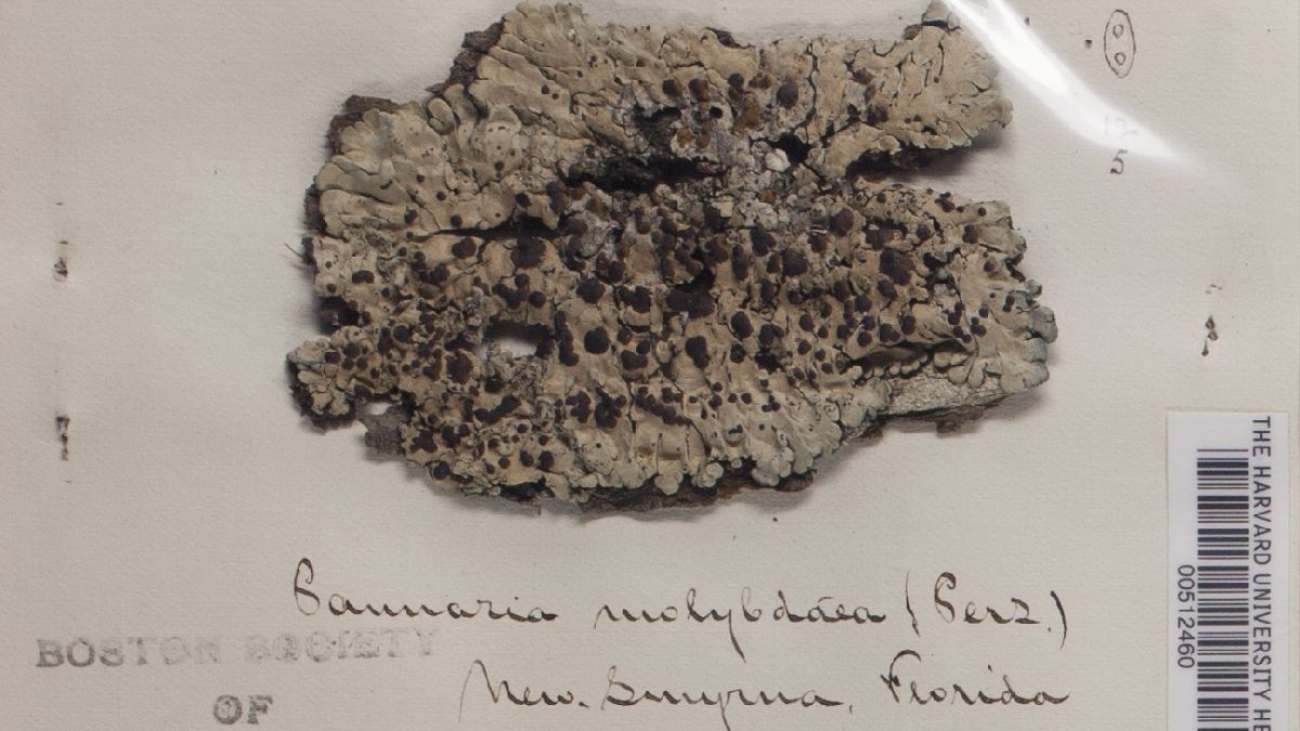 5
Pannaria molybdaea (Pers.)
BOSTON SOCIETY
New. Smyrna, Florida
OF
THE HARVARD UNIVERSITY HE
00512460